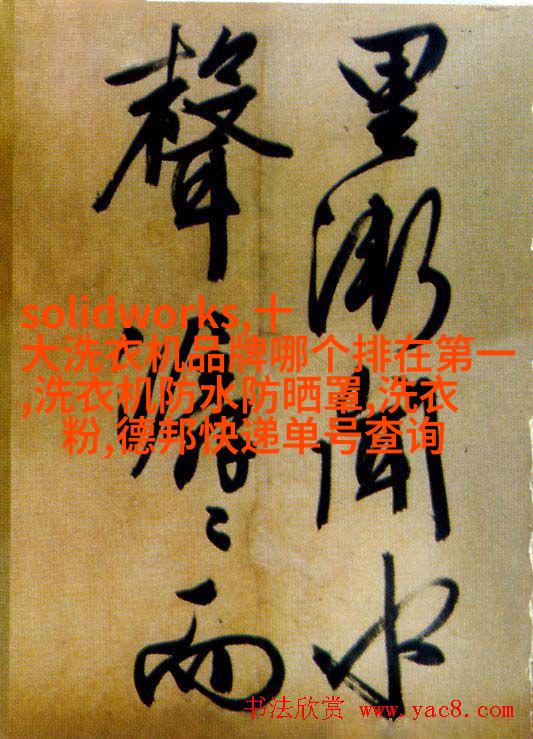 里漸聞水
聲潺〻而
solidworks,十
大洗衣机品牌哪个排在第一
,洗衣机防水防晒罩,洗衣
粉,德邦快递单号查询
书法欣赏 www.yac8.com